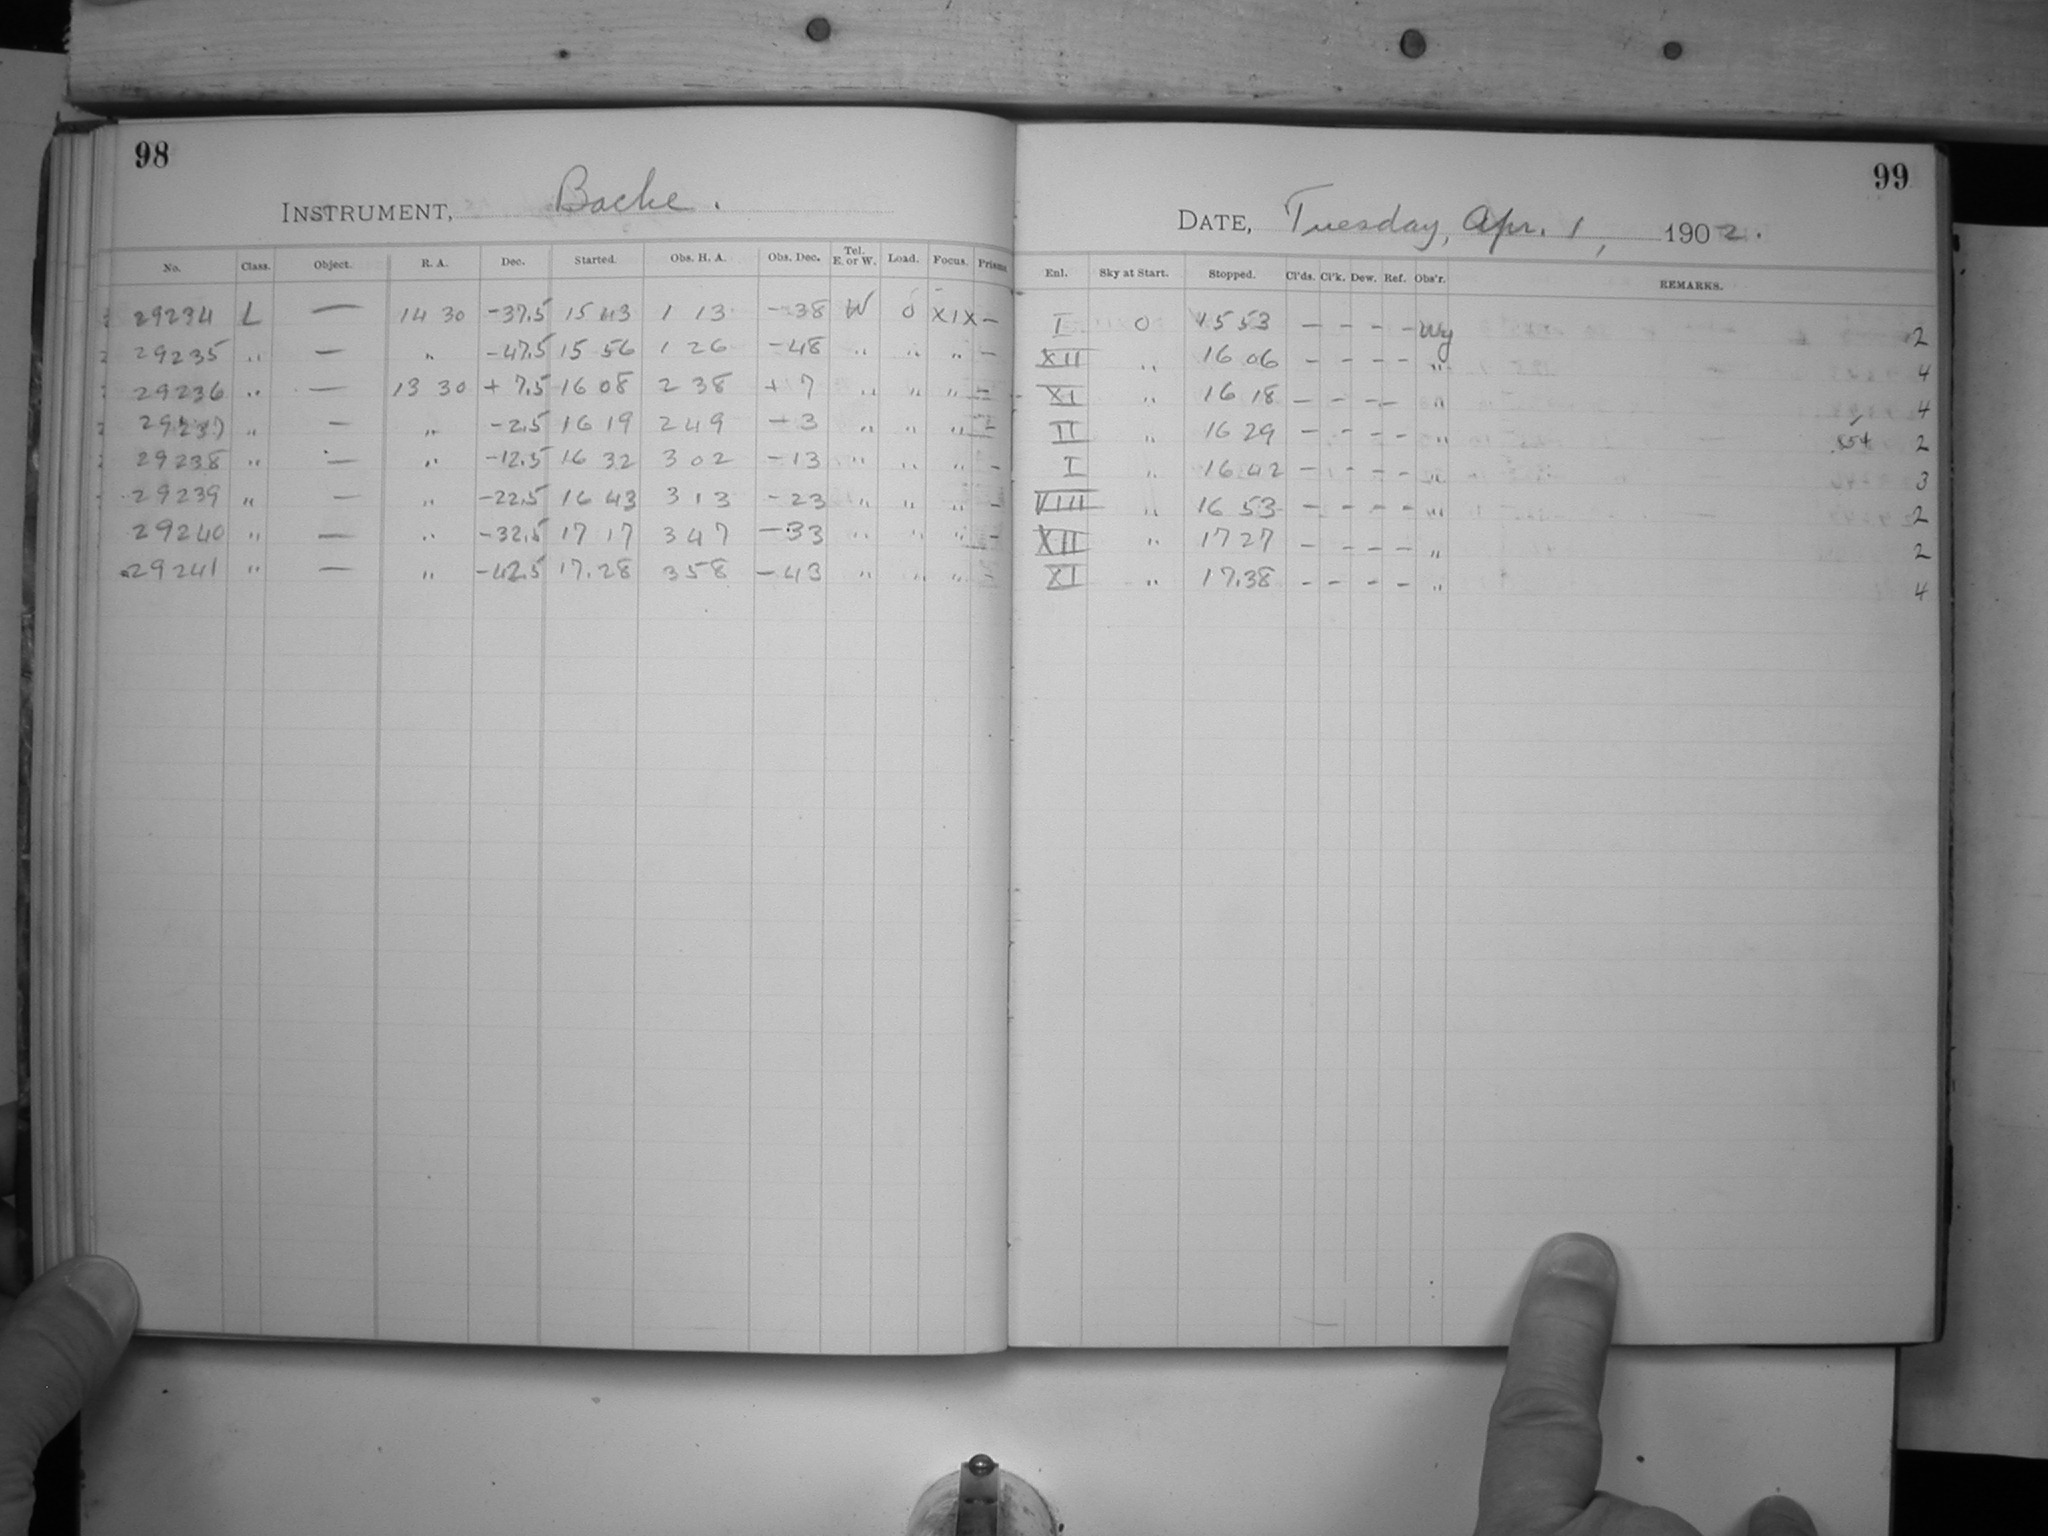 98
INSTRUMENT, Bache.
No. Class. Object. R. A. Dec. Started. Obs. H. A. Obs. Dec. Tel. E. or W. Load. Focus. Prisms.
29234 L — 14 30 -37.5 15 43 1 13 -38 W 0 XIX —
29235 " — " -47.5 15 56 1 26 -48 " " " —
29236 " — 13 30 + 7.5 16 08 2 38 + 7 " " " —
29237 " — " -2.5 16 19 2 49 -3 " " " —
29238 " — " -12.5 16 32 3 02 -13 " " " —
29239 " — " -22.5 16 43 3 13 -23 " " " —
29240 " — " -32.5 17 17 3 47 -33 " " " —
29241 " — " -42.5 17.28 3 58 -43 " " " —
99
DATE, Tuesday, Apr. 1, 1902.
Enl. Sky at Start. Stopped. Cl'ds. Cl'k. Dew. Ref. Obs'r. REMARKS.
I 0 15 53 — — — — Wy 2
XII " 16 06 — — — — " 4
XI " 16 18 — — — — " 4
II " 16 29 — — — — " 2
I " 16 42 — — — — " 3
VIII " 16 53 — — — — " 2
XII " 17 27 — — — — " 2
XI " 17.38 — — — — " 4